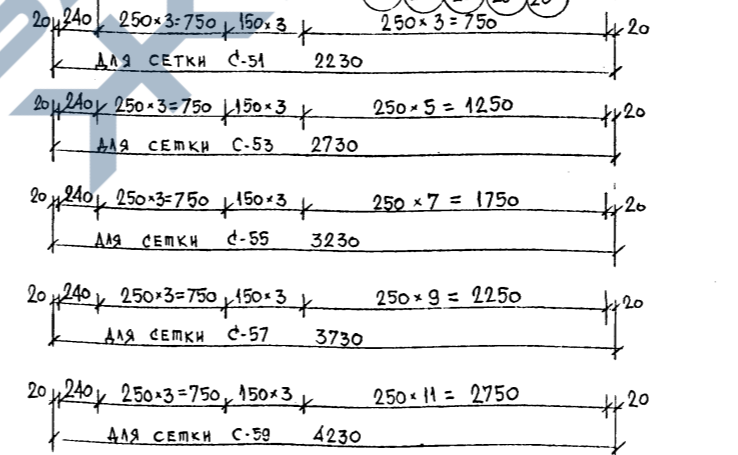 20 240 250×3=750 150×3 250×3=750 20
ДЛЯ СЕТКИ С-51 2230
20 240 250×3=750 150×3 250×5=1250 20
ДЛЯ СЕТКИ С-53 2730
20 240 250×3=750 150×3 250×7=1750 20
ДЛЯ СЕТКИ С-55 3230
20 240 250×3=750 150×3 250×9=2250 20
ДЛЯ СЕТКИ С-57 3730
20 240 250×3=750 150×3 250×11=2750 20
ДЛЯ СЕТКИ С-59 4230